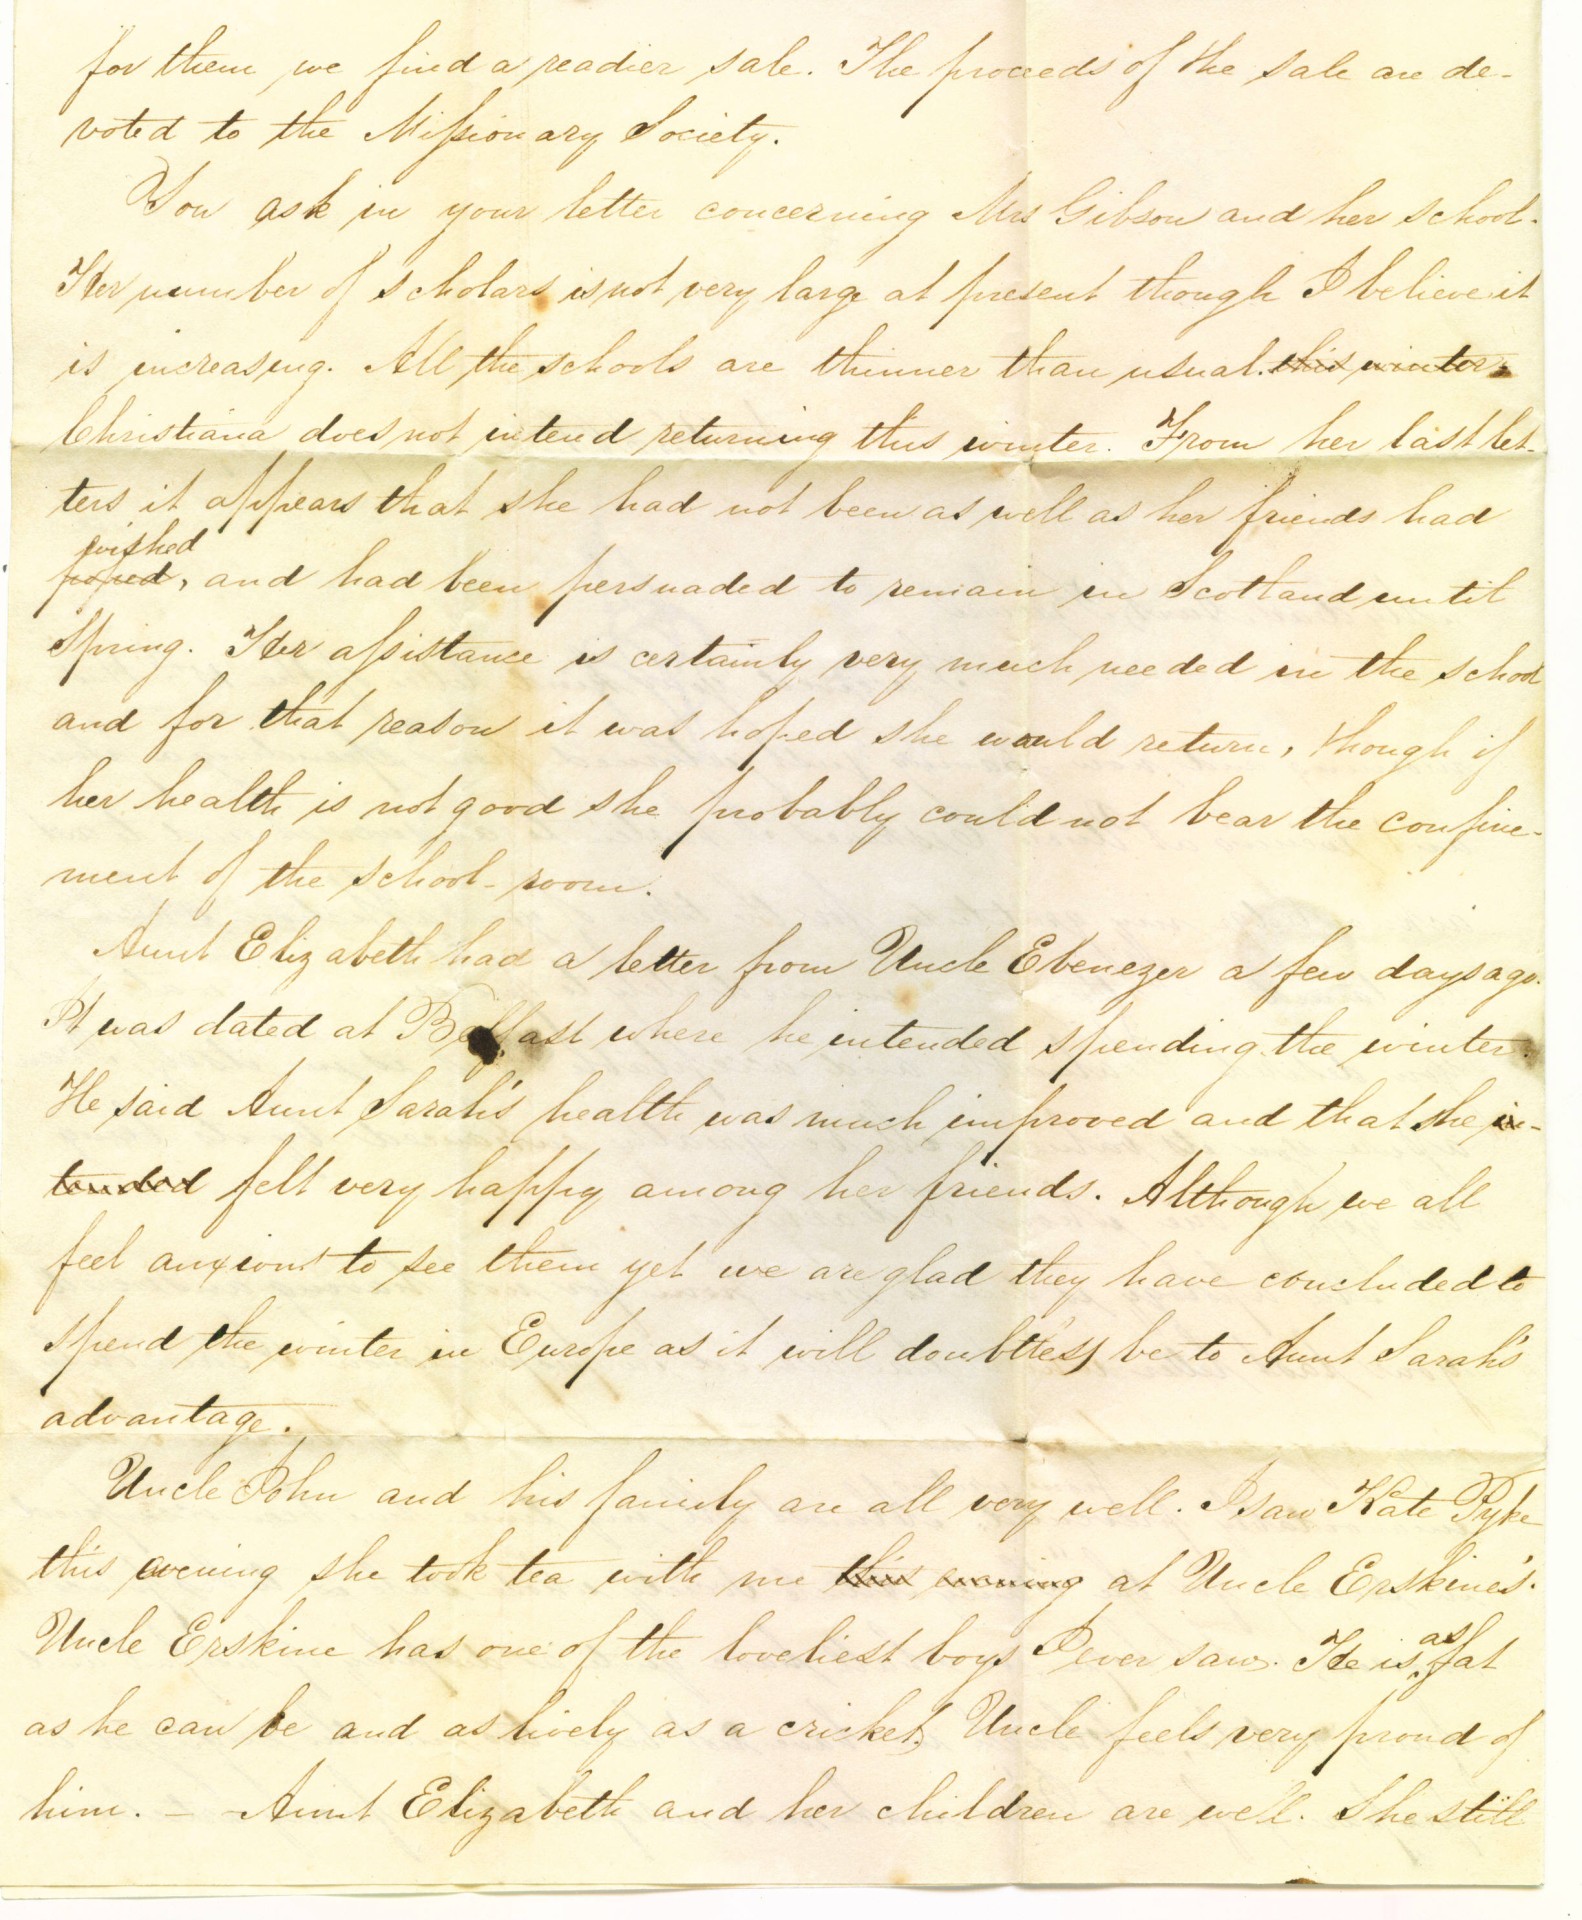 for them we find a readier sale. The proceeds of the sale are de-
voted to the Missionary Society.
You ask in your letter concerning Mrs Gibson and her school.
Her number of scholars is not very large at present though I believe it
is increasing. All the schools are thinner than usual. this winter.
Christiana does not intend returning this winter. From her last let-
ters it appears that she had not been as well as her friends had
wished
hoped, and had been persuaded to remain in Scotland until
Spring. Her assistance is certainly very much needed in the school
and for that reason it was hoped she would return, though if
her health is not good she probably could not bear the confine-
ment of the school-room.
Aunt Elizabeth had a letter from Uncle Ebenezer a few days ago.
It was dated at Belfast where he intended spending the winter.
He said Aunt Sarah's health was much improved and that she in-
tended felt very happy among her friends. Although we all
feel anxious to see them yet we are glad they have concluded to
spend the winter in Europe as it will doubtless be to Aunt Sarah's
advantage.
Uncle John and his family are all very well. I saw Kate Pyke
this evening she took tea with me this evening at Uncle Erskine's.
Uncle Erskine has one of the loveliest boys I ever saw. He is as fat
as he can be and as lively as a cricket, Uncle feels very proud of
him. – – Aunt Elizabeth and her children are well. She still